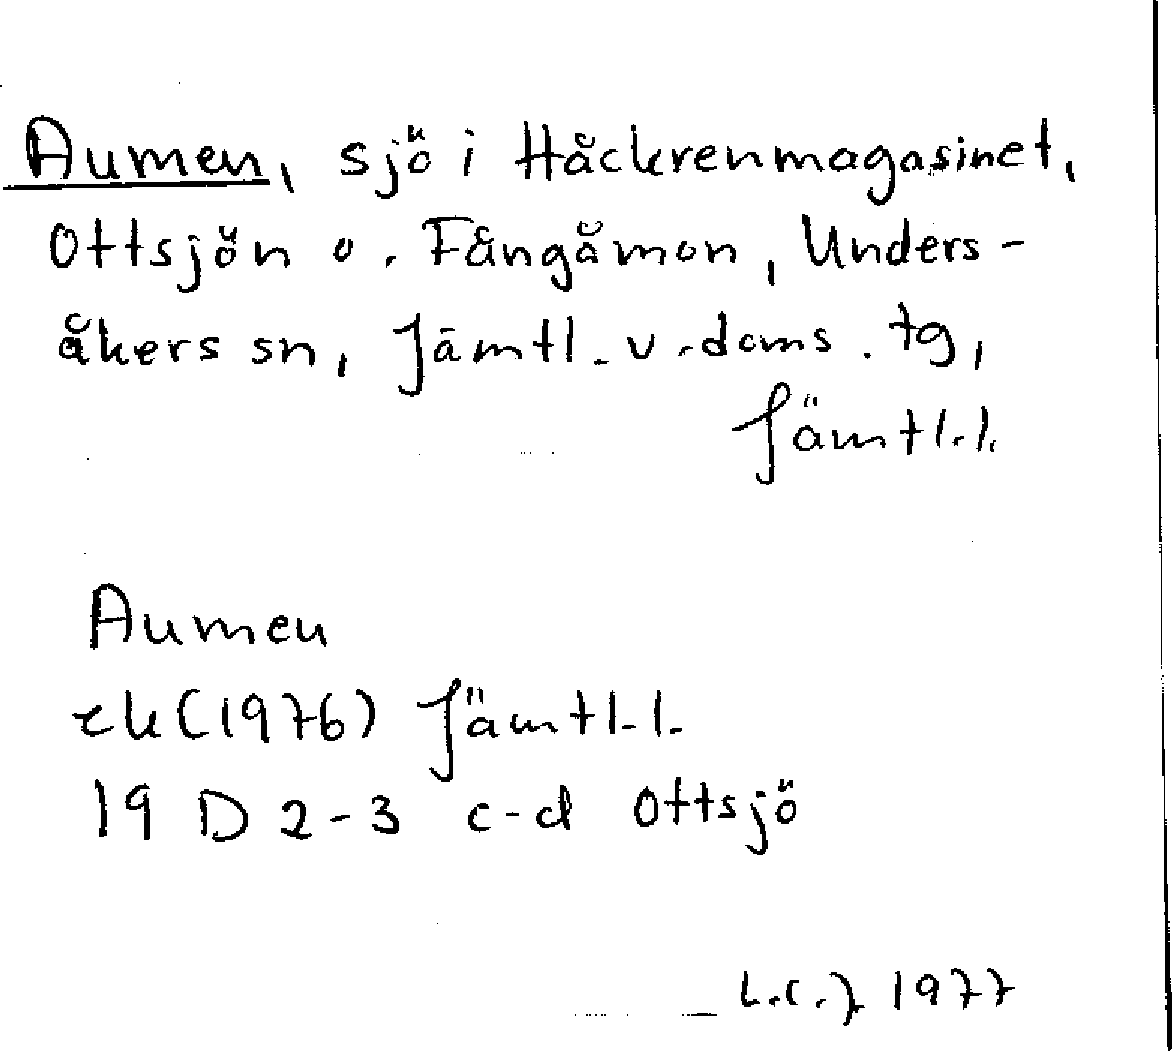 Aumen, sjö i Håckrenmagasinet,
Ottsjön o. Fångåmon, Unders-
åkers sn, Jämtl. v. doms. tg,
Jämtl.l.
Aumen
ek (1976) Jämtl.l.
19 D 2-3 c-d Ottsjö
L.C.J 1977